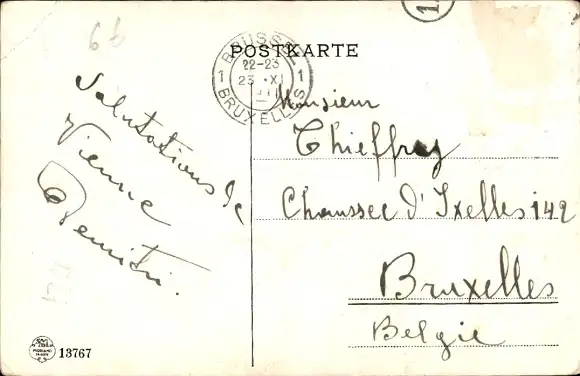 POSTKARTE
BRUSSEL
1 22-23 1
23 XI
BRUXELLES
Salutations de
Vienne
Demitri.
Monsieur
Thieffroy
Chaussee d'Ixelles 142
Bruxelles
Belgie
13767